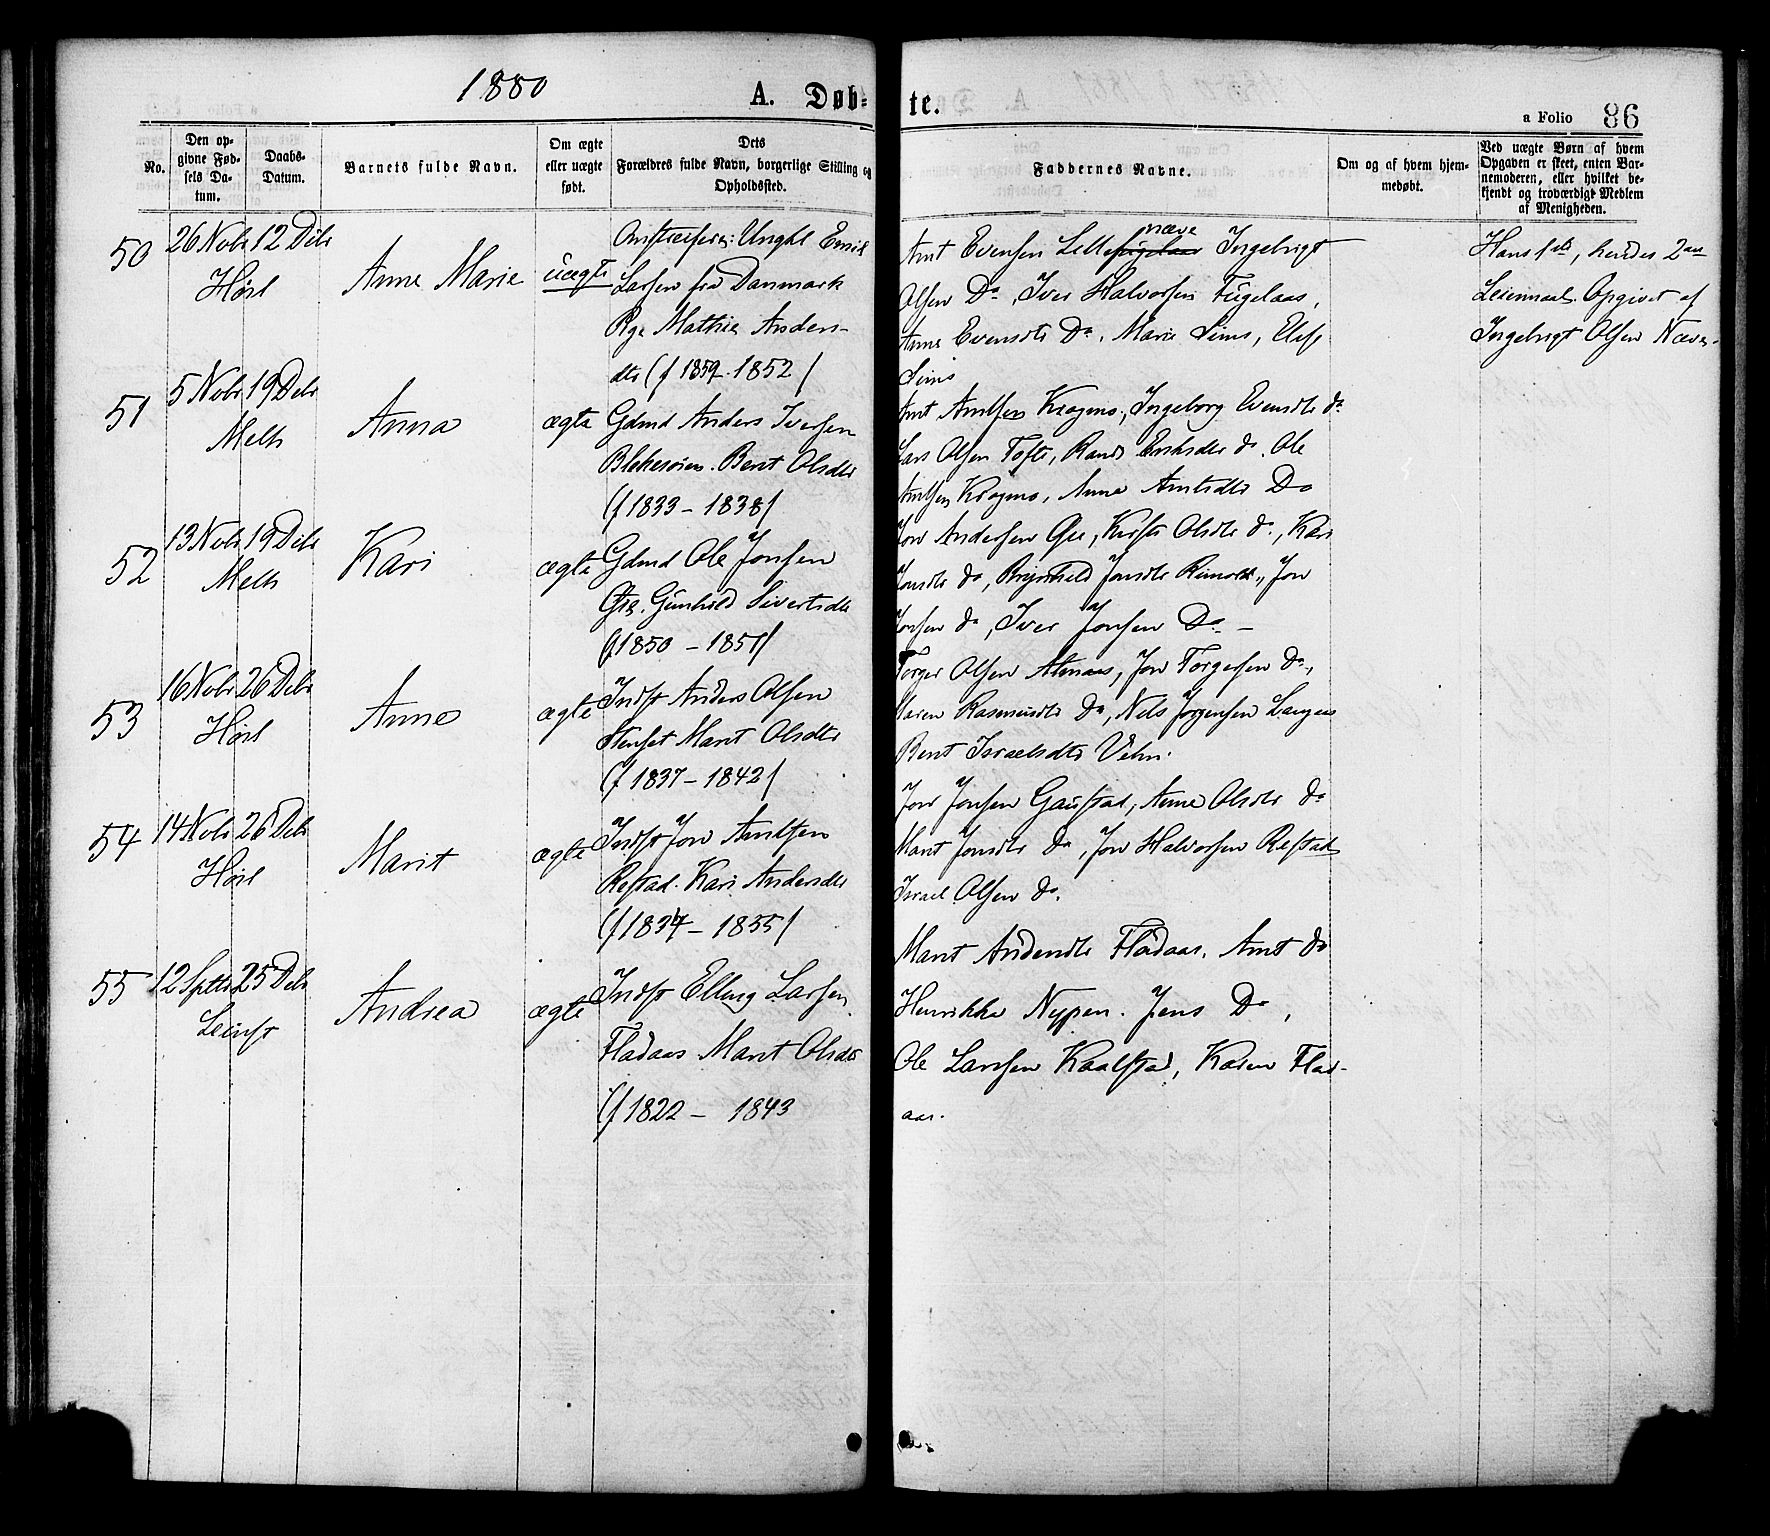 1880
A. Døb-
te.
a Folio 86
No.
Den op-
givne Fød-
sels Da-
tum.
Daabs-
Datum.
Barnets fulde Navn.
Om ægte
eller uægte
født.
Dets
Forældres fulde Navn, borgerlige Stilling og
Opholdssted.
Faddernes Navne.
Om og af hvem hjem-
medøbt.
Ved uægte Børn af hvem
Opgaven er skeet, enten Bar-
nemoderen, eller hvilket be-
kjendt og troværdigt Medlem
af Menigheden.
50
26 Nobr 12 Dcbr
Hørl
Anne Marie
uægte
Ungkl Emil
Larsen fra Danmark
Pge Mathie Anders-
dtr (f 1859 - 1852)
Arnt Evensen Lille næve Ingebrigt
Olsen Do, Iver Halvorsen Fuglaas,
Anne Evensdtr Do, Marie Sims, Elise
Sims
Hans 1ste, hendes 2det
Leiermaal. Opgivet af
Ingebrigt Olsen Næve.
51
5 Nobr 19 Dcbr
Melh
Anna
ægte
Gdmd Anders Iversen
Blekesøien. Berit Olsdtr
(f 1833 - 1838)
Arnt Arntsen Krogmo, Ingeborg Evensdtr do
Lars Olsen Tofte, Randi Eriksdtr do. Ole
Arntsen Krogmo, Anne Arntsdtr Do
52
13 Nobr 19 Dcbr
Melh
Kari
ægte
Gdmd Ole Jonsen
Øie. Gunhild Sivertsdtr
(f 1850 - 1851)
Jon Andersen Øie, Kirsti Olsdtr do, Kari
Jonsdtr do, Brynhild Jonsdtr Rimol, Jon
Jonsen do, Iver Jonsen Do -
53
16 Nobr 26 Dcbr
Hørl
Anne
ægte
Indst Anders Olsen
Stenset Marit Olsdtr
(f 1837 - 1842)
Torger Olsen Almaas, Jon Torgersen Do,
Maren Rasmusdtr Do, Nils Jørgensen Langens
Berit Israelsdtr Vehn.
54
14 Nobr 26 Dcbr
Hørl
Marit
ægte
Indst Jon Arntsen
Restad. Kari Andersdtr
(f 1837 - 1835)
Jon Jonsen Gaustad, Anne Olsdtr do
Marit Jonsdtr Do, Jon Halvorsen Restad
Israel Olsen do.
55
12 Sptbr 25 Dcbr
Leinst
Andrea
ægte
Indst Elling Larsen
Fladaas Marit Olsdtr
(f 1822 - 1843
Marit Andersdtr Fladaas. Arnt do
Henrikke Nypen. Jens Do,
Ole Larssen Kaalstad, Karen Flad-
aas.